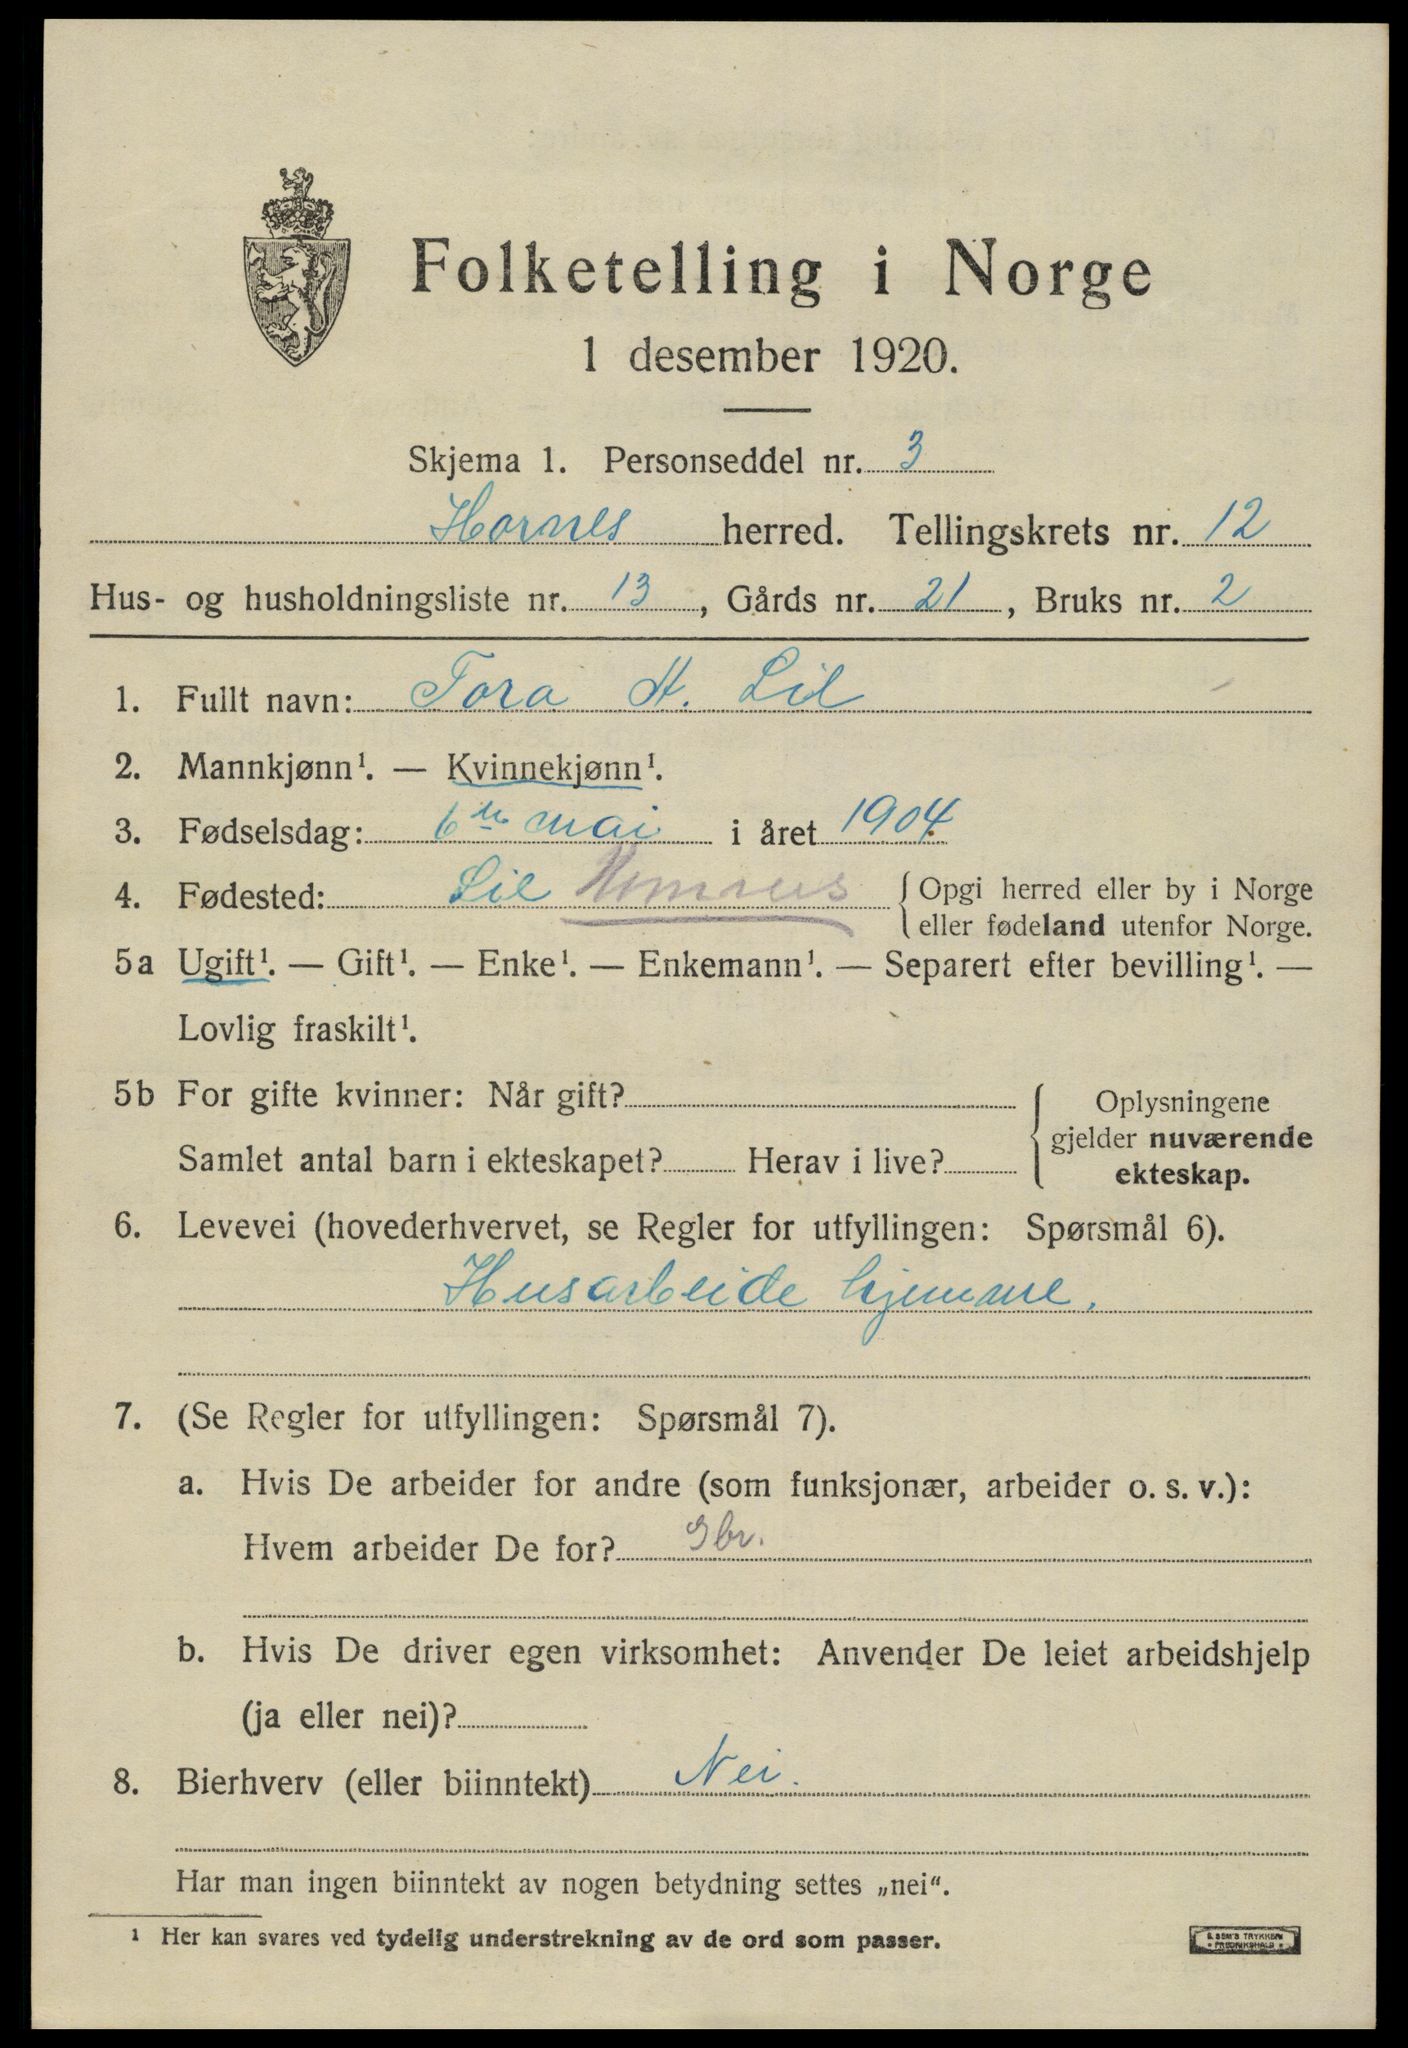 Folketelling i Norge
1 desember 1920.
Skjema 1. Personseddel nr. 3
Hornnes herred. Tellingskrets nr. 12
Hus- og husholdningsliste nr. 13, Gårds nr. 21, Bruks nr. 2
1. Fullt navn: Tora H. Lil
2. Mannkjønn¹. — Kvinnekjønn¹.
3. Fødselsdag: 6te mai i året 1904.
4. Fødested: Lil Hornnes { Opgi herred eller by i Norge
eller fødeland utenfor Norge.
5a Ugift¹. — Gift¹. — Enke¹. — Enkemann¹. — Separert efter bevilling¹. —
Lovlig fraskilt¹.
5b For gifte kvinner: Når gift?
Samlet antal barn i ekteskapet? Herav i live?
{ Oplysningene
gjelder nuværende
ekteskap.
6. Levevei (hovederhvervet, se Regler for utfyllingen: Spørsmål 6).
Husarbeide hjemme.
7. (Se Regler for utfyllingen: Spørsmål 7).
a. Hvis De arbeider for andre (som funksjonær, arbeider o. s. v.):
Hvem arbeider De for? Gbr.
b. Hvis De driver egen virksomhet: Anvender De leiet arbeidshjelp
(ja eller nei)?
8. Bierhverv (eller biinntekt) Nei.
Har man ingen biinntekt av nogen betydning settes „nei“.
¹ Her kan svares ved tydelig understrekning av de ord som passer.
E. SEM'S TRYKKERI
• FREDRIKSHALD •